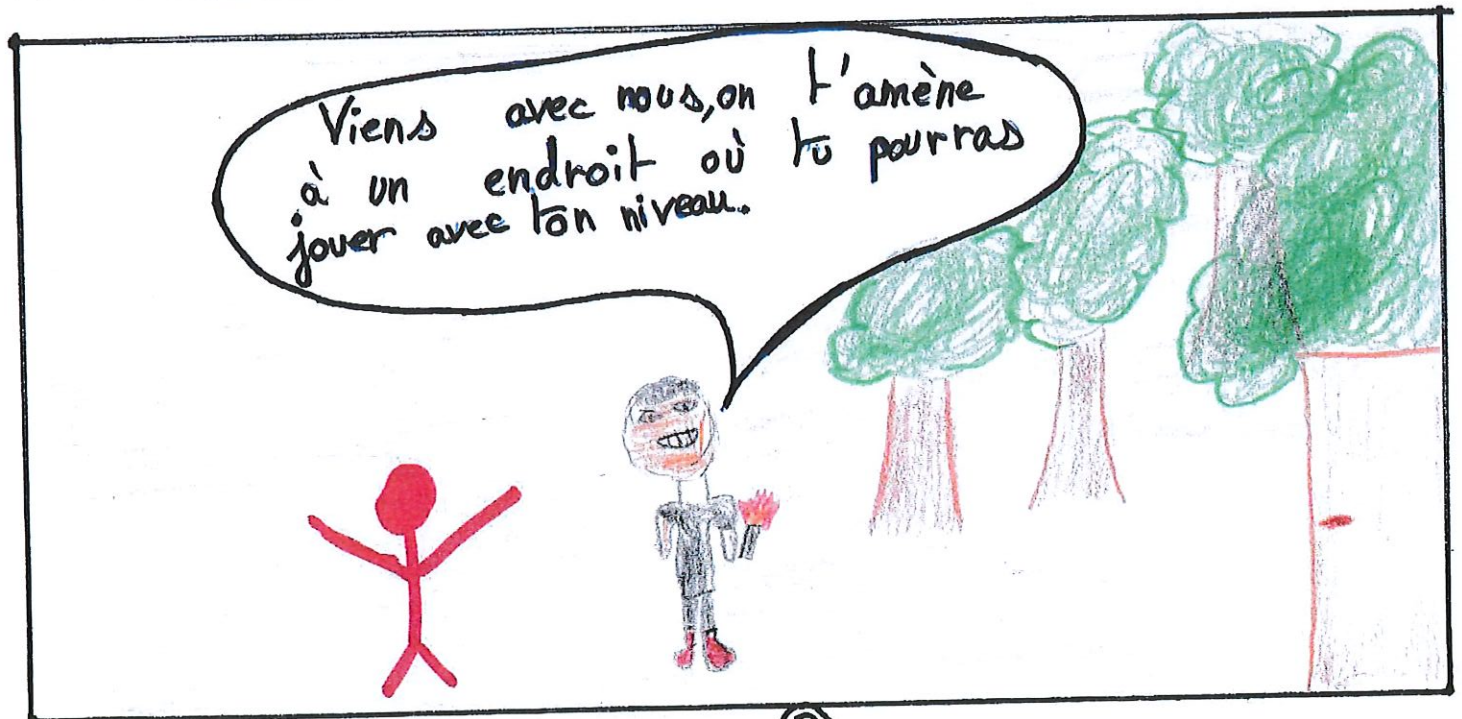 Viens avec nous, on t'amène
à un endroit où tu pourras
jouer avec ton niveau.